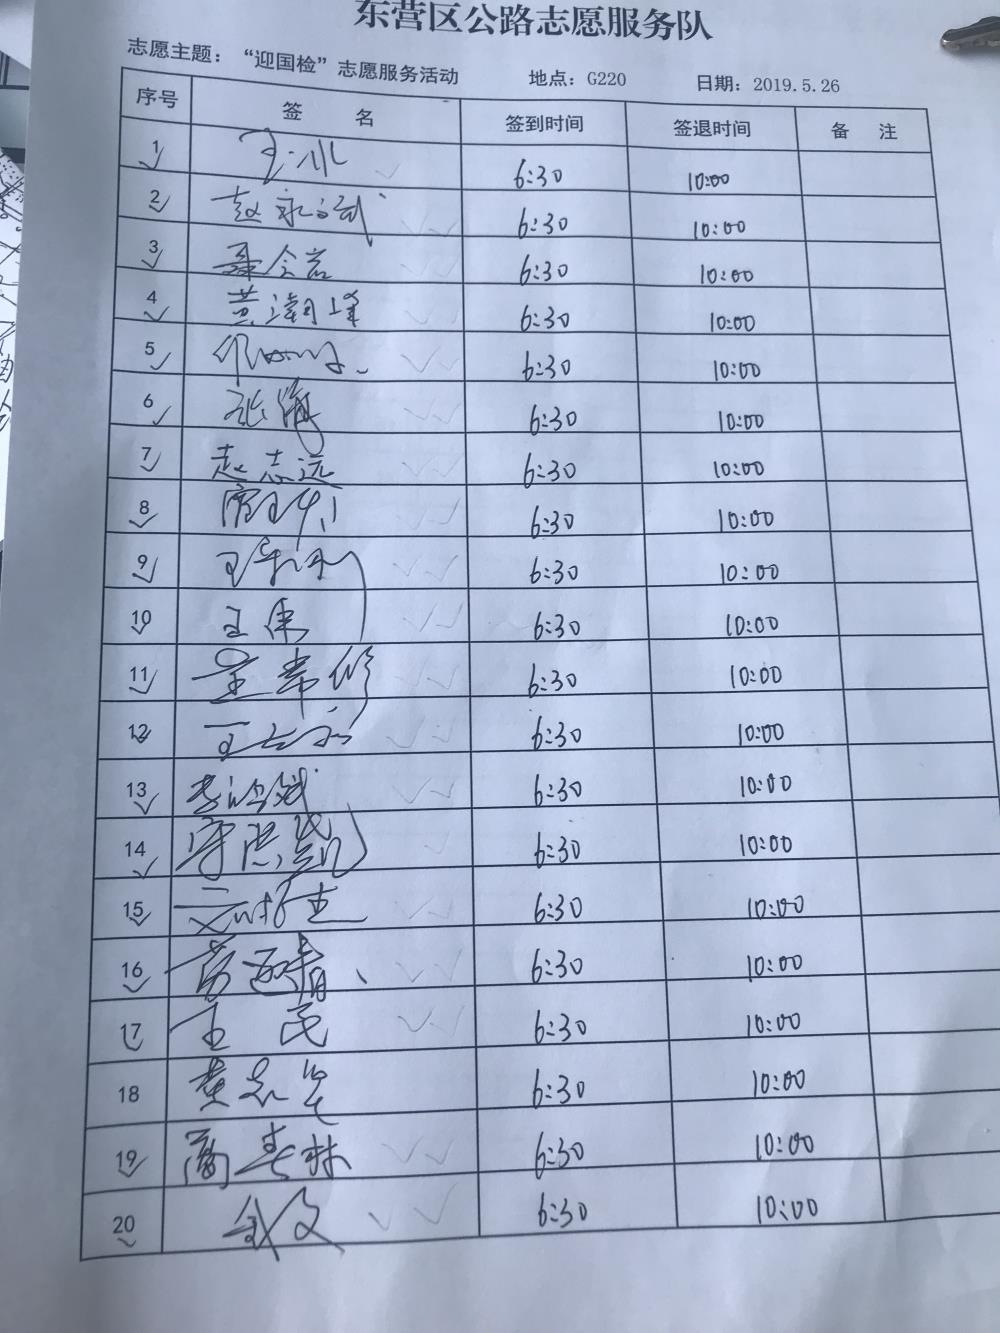 东营区公路志愿服务队
志愿主题：“迎国检”志愿服务活动 地点：G220 日期：2019.5.26
序号 签 名 签到时间 签退时间 备 注
1 王冰 6:30 10:00
2 赵永斌 6:30 10:00
3 6:30 10:00
4 黄潮峰 6:30 10:00
5 6:30 10:00
6 张海 6:30 10:00
7 赵志远 6:30 10:00
8 6:30 10:00
9 6:30 10:00
10 6:30 10:00
11 6:30 10:00
12 6:30 10:00
13 6:30 10:00
14 6:30 10:00
15 6:30 10:00
16 6:30 10:00
17 王民 6:30 10:00
18 6:30 10:00
19 商春林 6:30 10:00
20 6:30 10:00